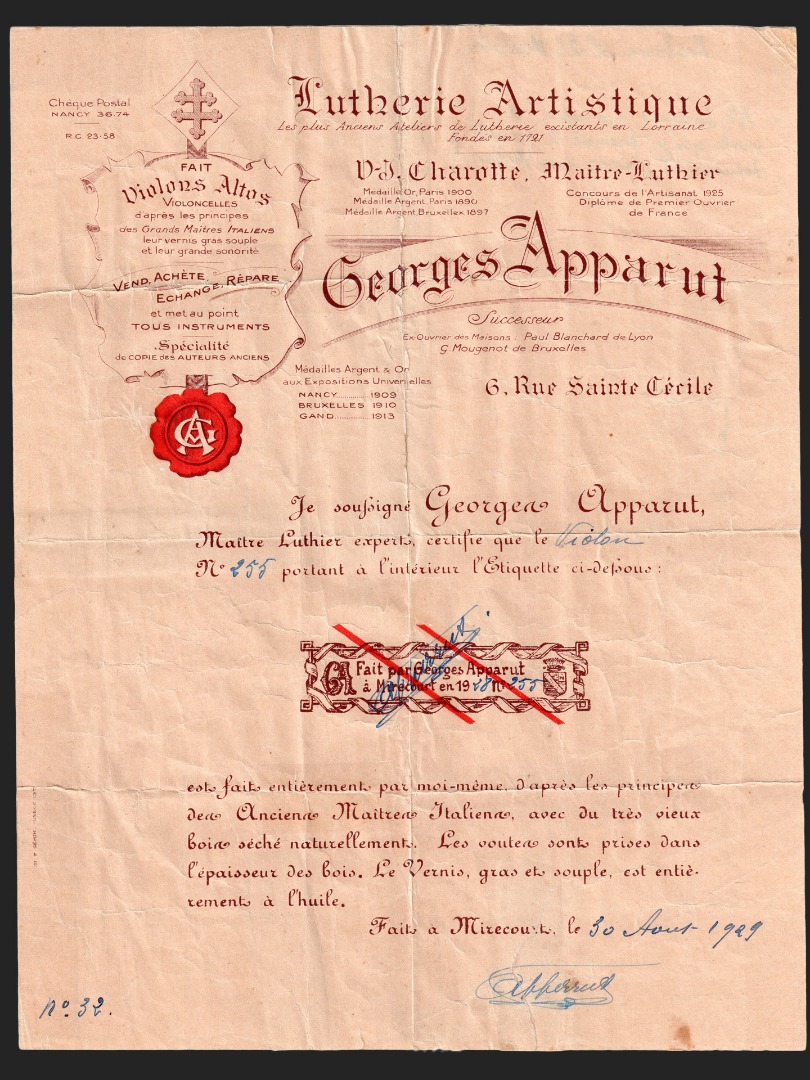 Chèque Postal
NANCY 36.74
R.C. 23.58
Lutherie Artistique
Les plus Anciens Ateliers de Lutherie existants en Lorraine
Fondés en 1721
D-J. Charotte, Maître-Luthier
Médaille Or, Paris 1900
Médaille Argent, Paris 1890
Médaille Argent, Bruxelles 1897
Concours de l'Artisanat 1925
Diplôme de Premier Ouvrier
de France
Georges Apparut
Successeur
Ex-Ouvrier des Maisons : Paul Blanchard de Lyon
G. Mougenot de Bruxelles
FAIT
Violons Altos
VIOLONCELLES
d'après les principes
des Grands Maîtres ITALIENS
leur vernis gras souple
et leur grande sonorité
VEND, ACHÈTE
ECHANGE, RÉPARE
et met au point
TOUS INSTRUMENTS
Spécialité
de COPIE des AUTEURS ANCIENS
GA
Médailles Argent & Or
aux Expositions Universelles
NANCY............1909
BRUXELLES 1910
GAND............1913
6, Rue Sainte Cécile
Je soussigné Georges Apparut,
Maître Luthier expert, certifie que le Violon
N° 255 portant à l'intérieur l'Etiquette ci-dessous :
GA
Fait par Georges Apparut
à Mirecourt en 1928 N° 255
Apparut
est fait entièrement par moi-même, d'après les principes
des Anciens Maîtres Italiens, avec du très vieux
bois séché naturellement. Les voutes sont prises dans
l'épaisseur des bois. Le Vernis, gras et souple, est entiè-
rement à l'huile.
Fait à Mirecourt, le 30 Aout 1929
Apparut
N° 32.